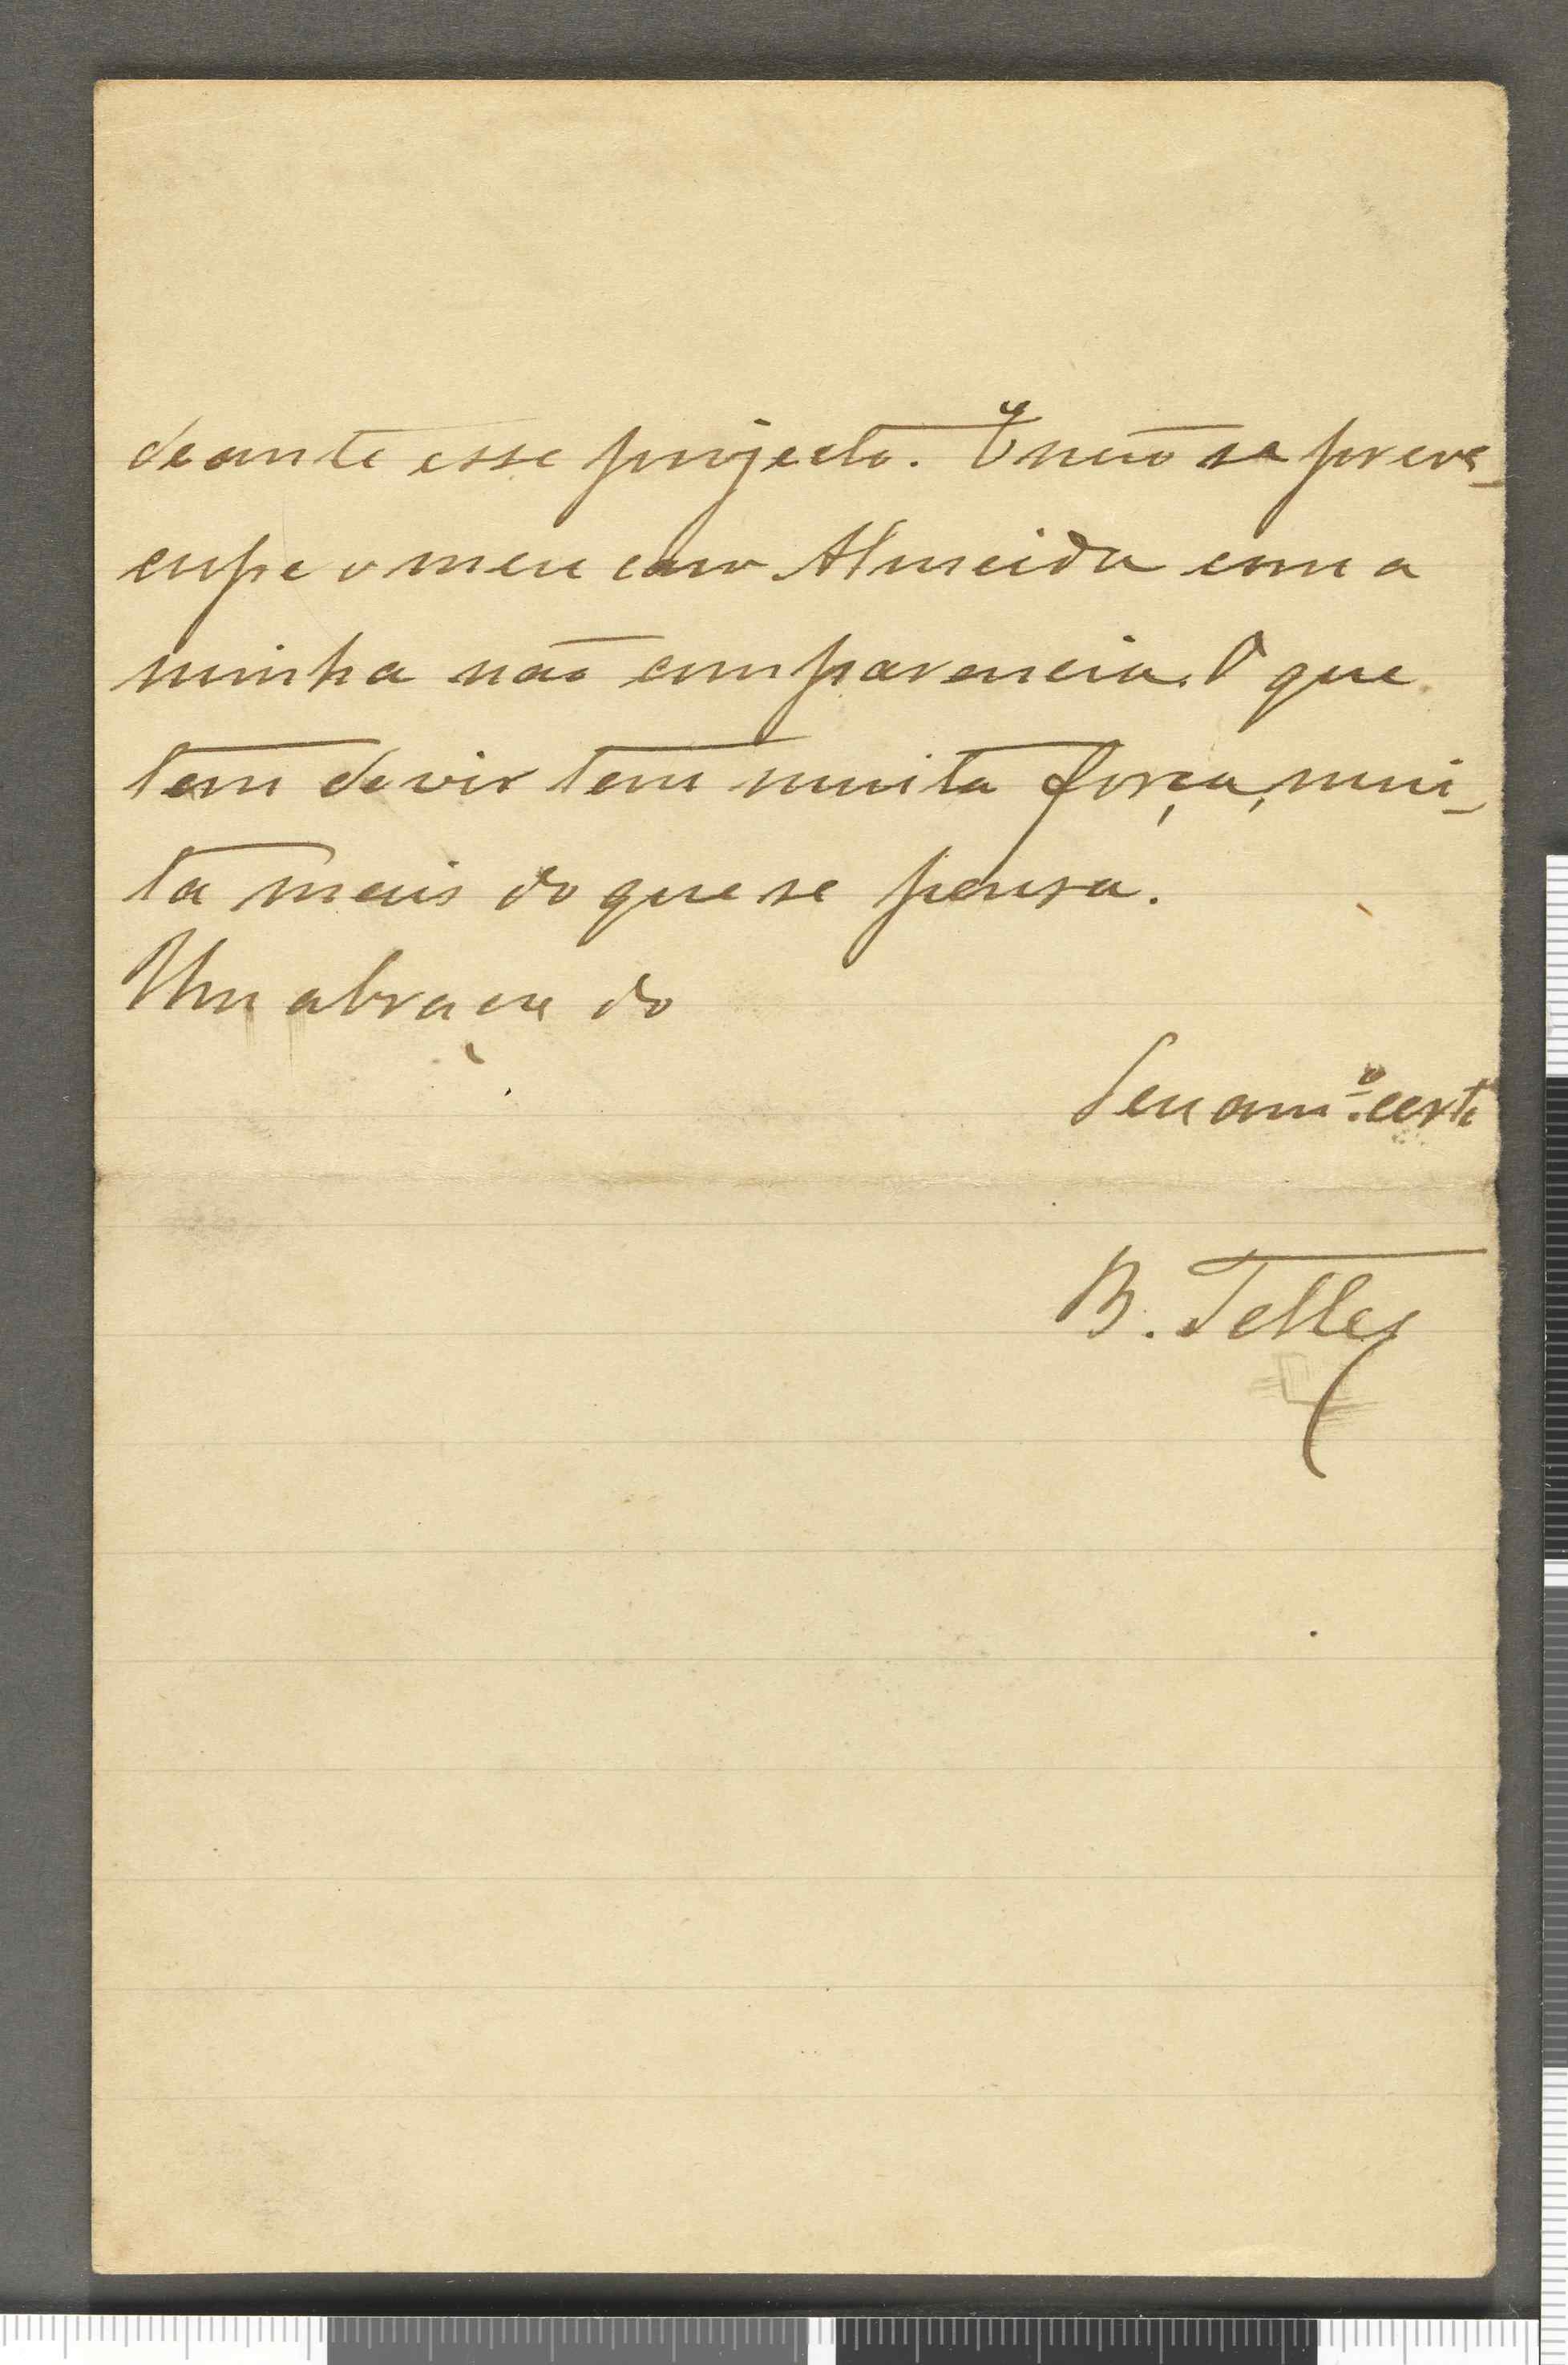 deante esse projecto. E não se preoc-
cupe o meu caro Almeida com a
minha não comparencia. O que
tem de vir tem muita força, mui-
ta mais do que se pensa.
Um abraço do
Seu am.º certo
B. Telles